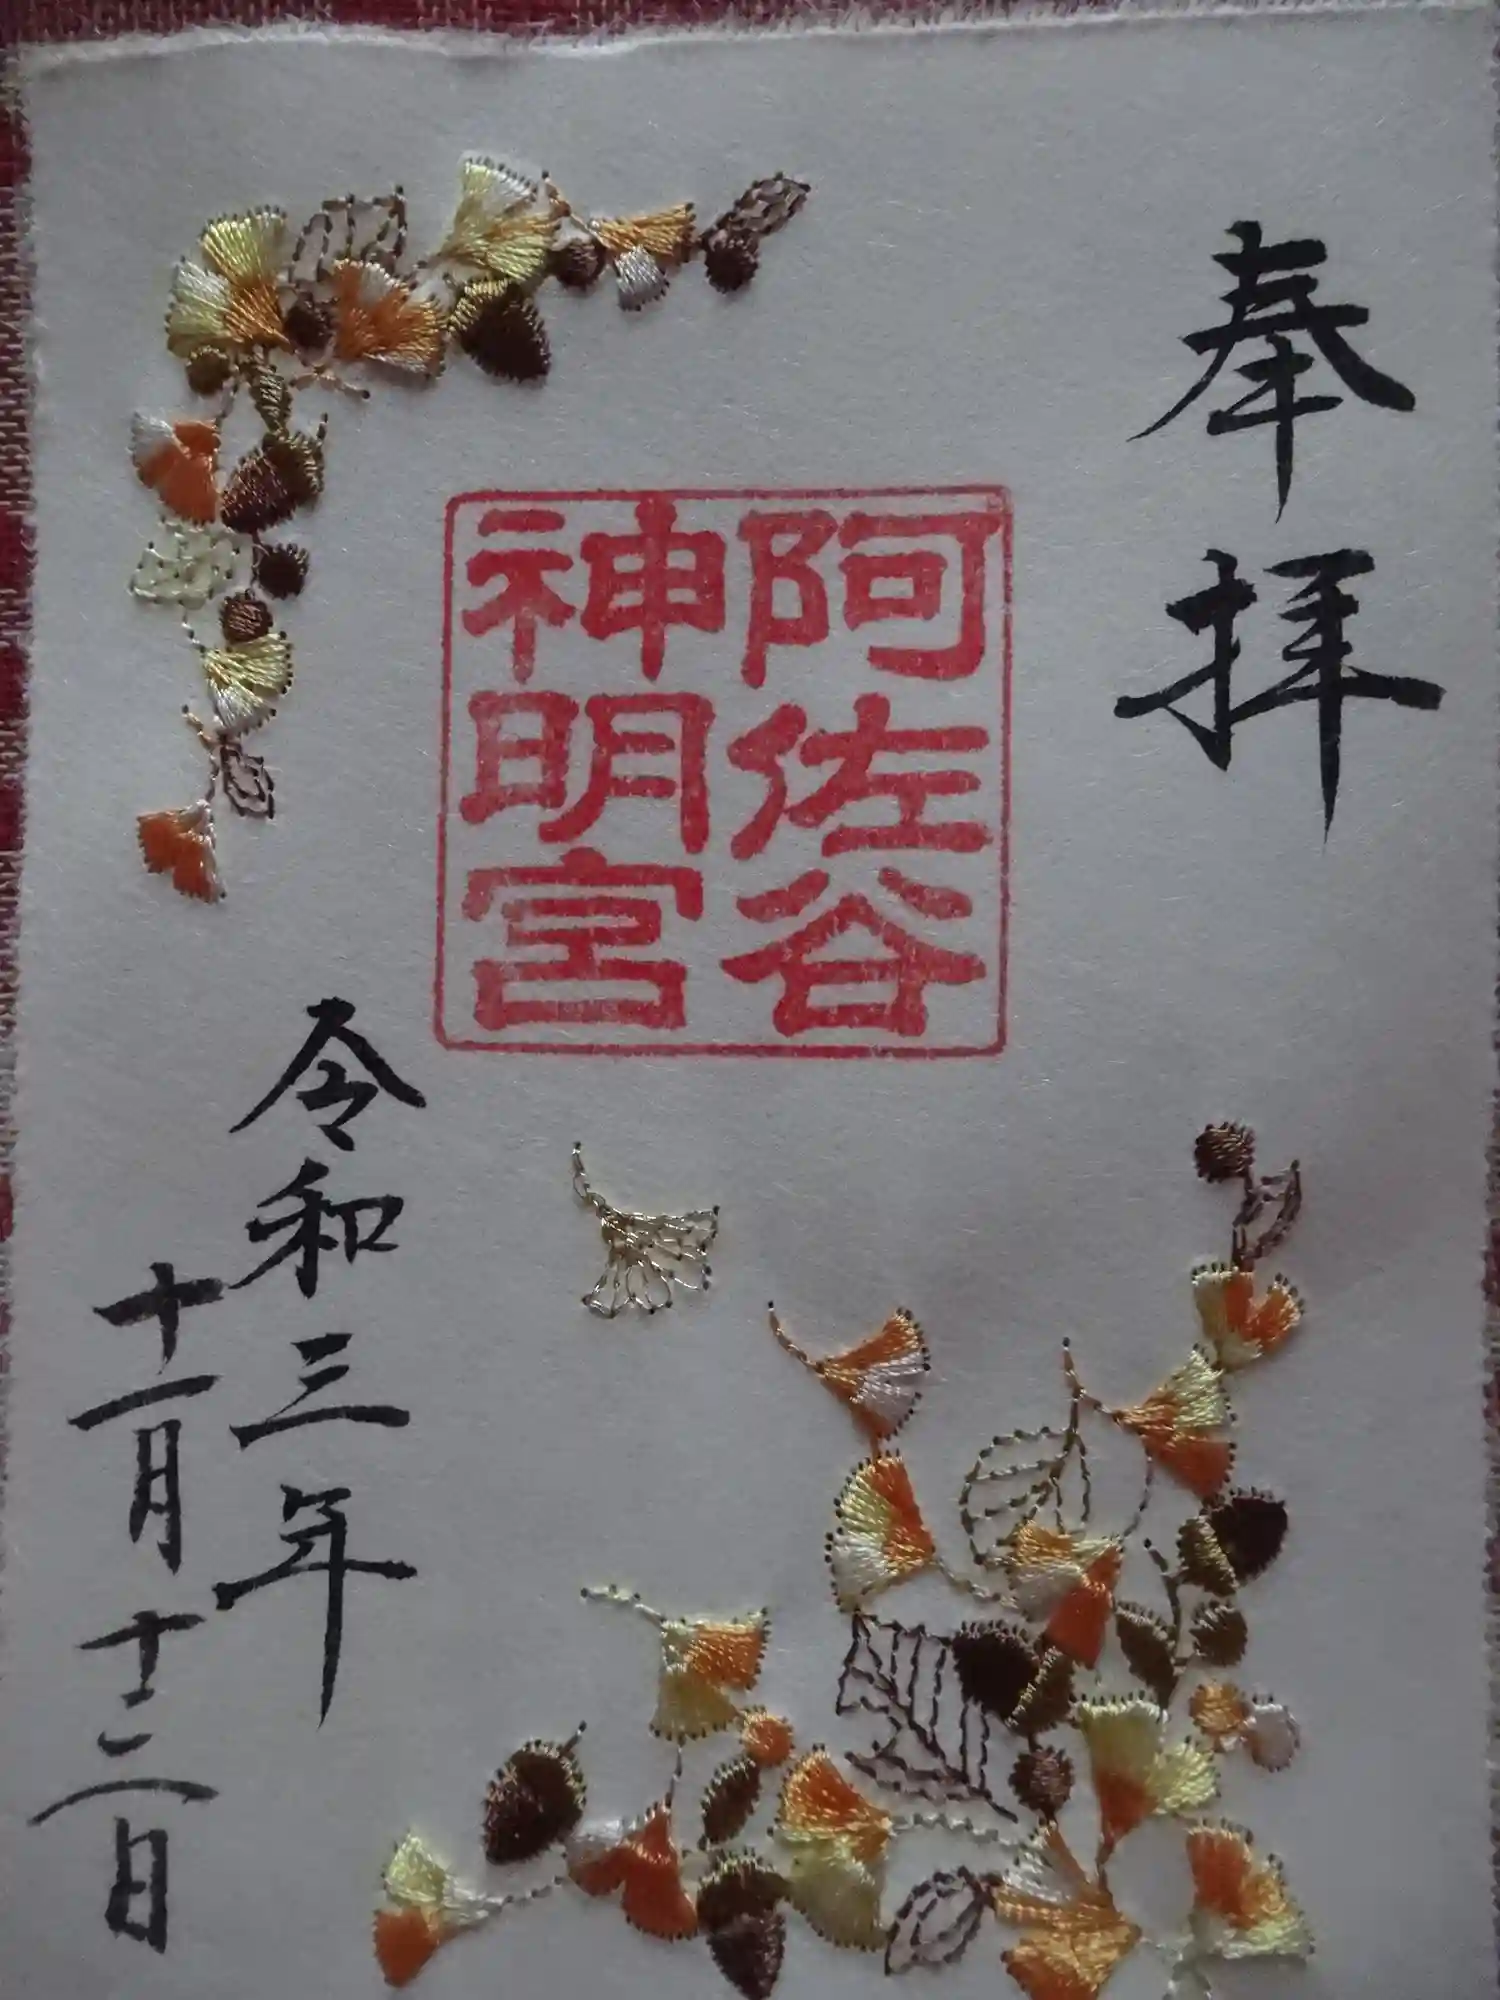 奉拝
阿佐谷
神明宮
令和三年
十一月十二日